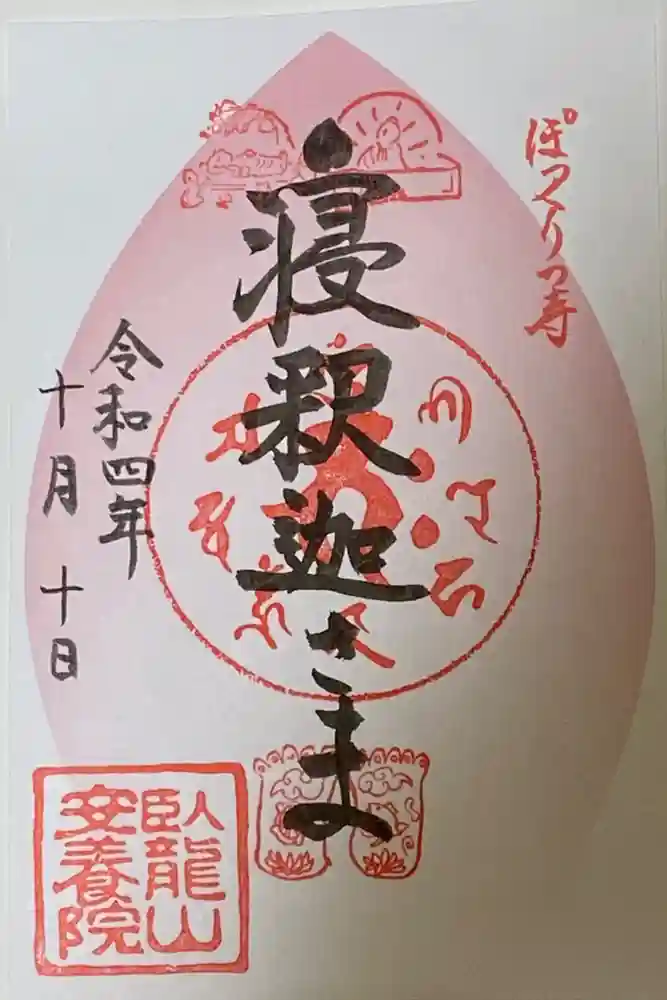 ぽっくりっ寺
寝釈迦さま
令和四年
十月十日
臥龍山
安養院